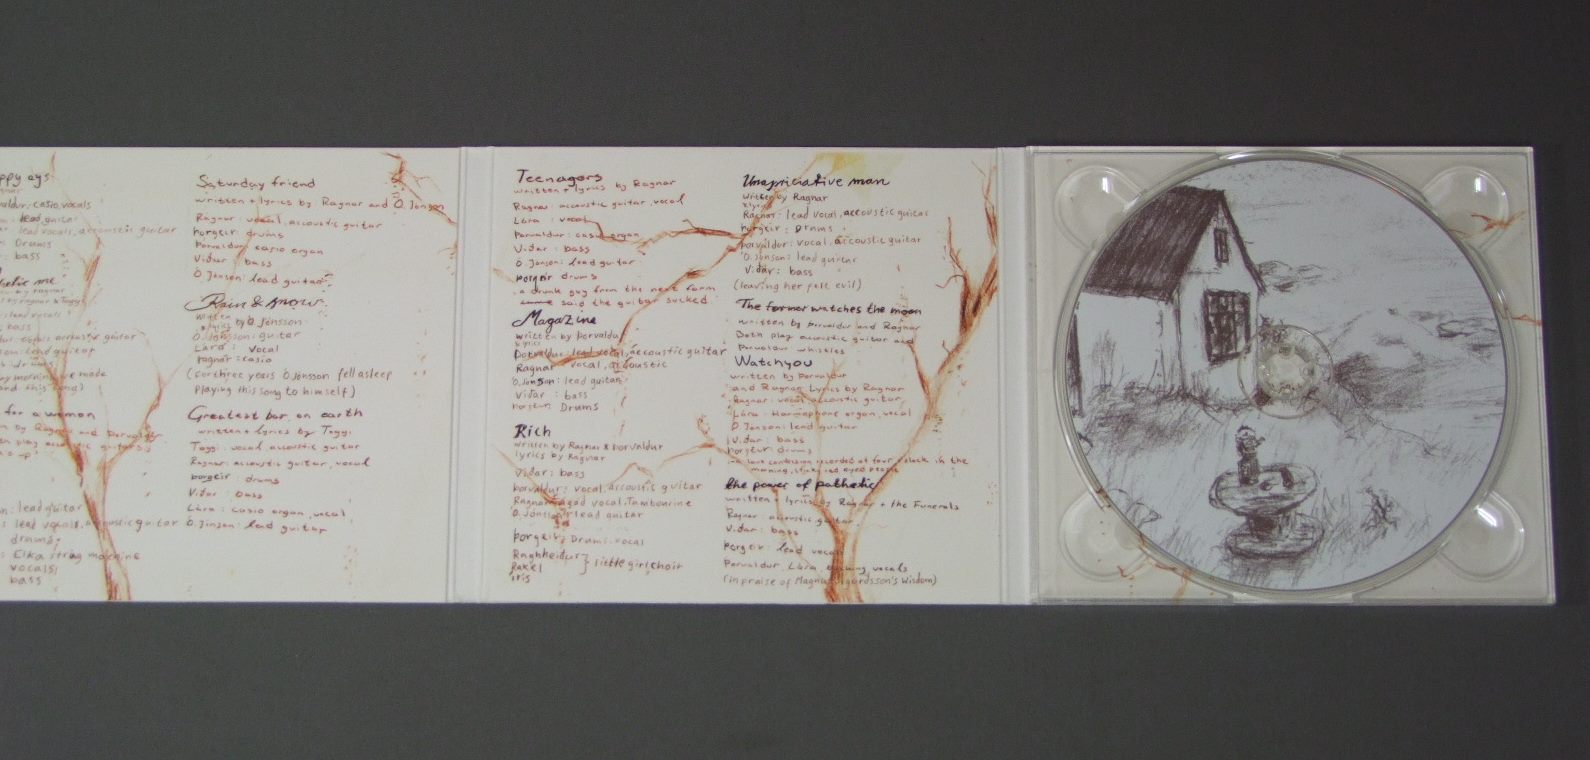 ppy ays
valdur, casio, vocals
: lead guitar
r: lead vocals, accoustic guitar
: Drums
: bass
hetic me
by ragnar & Toggi
: bass
accoustic guitar
son: lead guitar
and this song)
for a woman
by Ragnar and Þorvaldur
play acoustic guitars
s up!
n: lead guitar
s lead vocals, accoustic guitar
drums,
s Elka string machine
vocals
bass
Saturday friend
written + lyrics by Ragnar and Ö. Jónson
Ragnar: vocal, accoustic guitar
Þorgeir: drums
Þorvaldur: casio organ
Viðar: bass
Ö Jónson: lead guitar
Rain & snow
Written
lyrics by Ö. Jónsson
Ö. Jónsson: guitar
Lára: vocal
ragnar: casio
(for three years Ö Jónsson fell asleep
playing this song to himself)
Greatest bar on earth
written + lyrics by Toggi
Toggi: vocal acoustic guitar
Ragnar: acoustic guitar, vocal
Þorgeir: drums
Viðar: bass
Lára: casio organ, vocal
Ö. Jónson: lead guitar
Teenagers
written + lyrics by Ragnar
Ragnar: acoustic guitar, vocal
Lára: vocal
Þorvaldur: casio organ
Viðar: bass
Ö Jónson: lead guitar
Þorgeir drums
a drunk guy from the next farm
said the guitar sucked
Magazine
written by Þorvaldur
lyrics
Þorvaldur: lead vocal, accoustic guitar
Ragnar vocal, accoustic
Ö. Jónson: lead guitar
Viðar: bass
Þorgeir: Drums
Rich
written by Ragnar & Þorvaldur
lyrics by Ragnar
Viðar: bass
Þorvaldur: vocal, accoustic guitar
Ragnar: vocal, Tambourine
Ö. Jónson: lead guitar
Þorgeir: Drums, vocal
Ragnheiður
Rakel } little girl choir
Iris
Unapriciative man
Written by Ragnar
+ lyrics
Ragnar: lead vocal, accoustic guitar
Þorgeir: Drums
Þorvaldur: vocal, accoustic guitar
Ö. Jónson: lead guitar
Viðar: bass
(leaving her felt evil)
The farmer watches the moon
written by Þorvaldur and Ragnar
Both play acoustic guitar and
Þorvaldur whistles
Watchyou
written by Þorvaldur
and Ragnar Lyrics by Ragnar
Ragnar: vocal, accoustic guitar,
Lára: Harmophone organ, vocal
Ö Jónson: lead guitar
Viðar: bass
Þorgeir: drums
love confession recorded at four o'clock in the
morning, sticky red eyed people
the power of pathetic
written + lyrics by Ragnar + the Funerals
Ragnar: accoustic guitar
Viðar: bass
Þorgeir: lead vocals
Þorvaldur, Lára, backing vocals
(In praise of Magnus Sigurdsson's Wisdom)